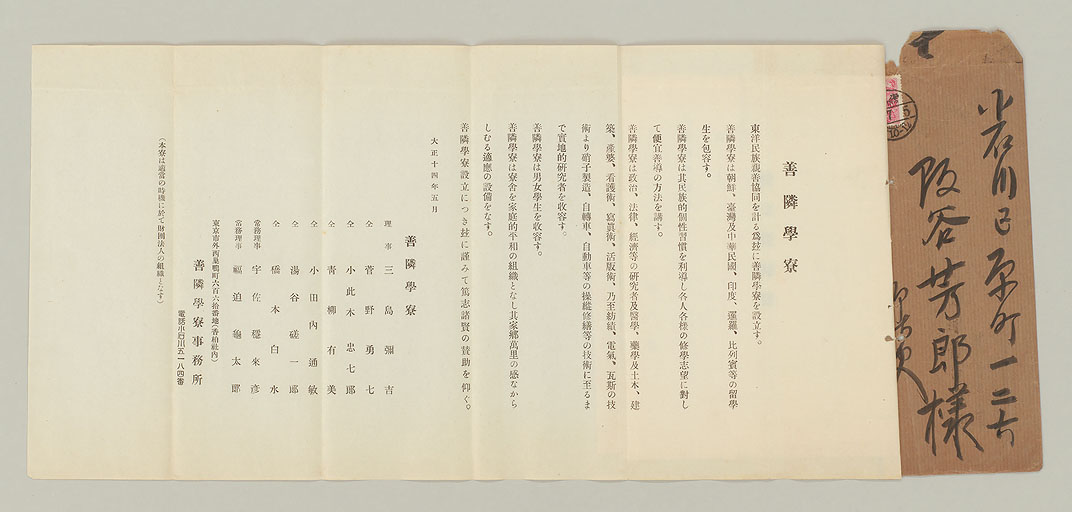 小石川區原町一二六
阪谷芳郎樣
善隣學寮
東洋民族親善協同を計る爲玆に善隣學寮を設立す。
善隣學寮は朝鮮、臺灣及中華民國、印度、暹羅、比列賓等の留學
生を包容す。
善隣學寮は其民族的個性習慣を利導し各人各樣の修學志望に對し
て便宜善導の方法を講す。
善隣學寮は政治、法律、經濟等の研究者及醫學、藥學及土木、建
築、產婆、看護術、寫眞術、活版術、乃至紡績、電氣、瓦斯の技
術より硝子製造、自轉車、自動車等の操縱修繕等の技術に至るま
で實地的研究者を收容す。
善隣學寮は男女學生を收容す。
善隣學寮は寮舍を家庭的平和の組織となし其家鄕萬里の感なから
しむる適應の設備をなす。
善隣學寮設立につき玆に謹みて篤志諸賢の賛助を仰ぐ。
大正十四年五月
善隣學寮
理事 三島彌吉
仝 菅野勇七
仝 小此木忠七郎
仝 靑柳有美
仝 小田內通敏
仝 湯谷磋一郎
仝 橋本白水
常務理事 宇佐穩來彥
常務理事 福迫龜太郎
東京市外西巢鴨町六百六拾番地(善柏社內)
善隣學寮事務所
電話小石川五一八四番
(本寮は適當の時機に於て財團法人の組織となす)